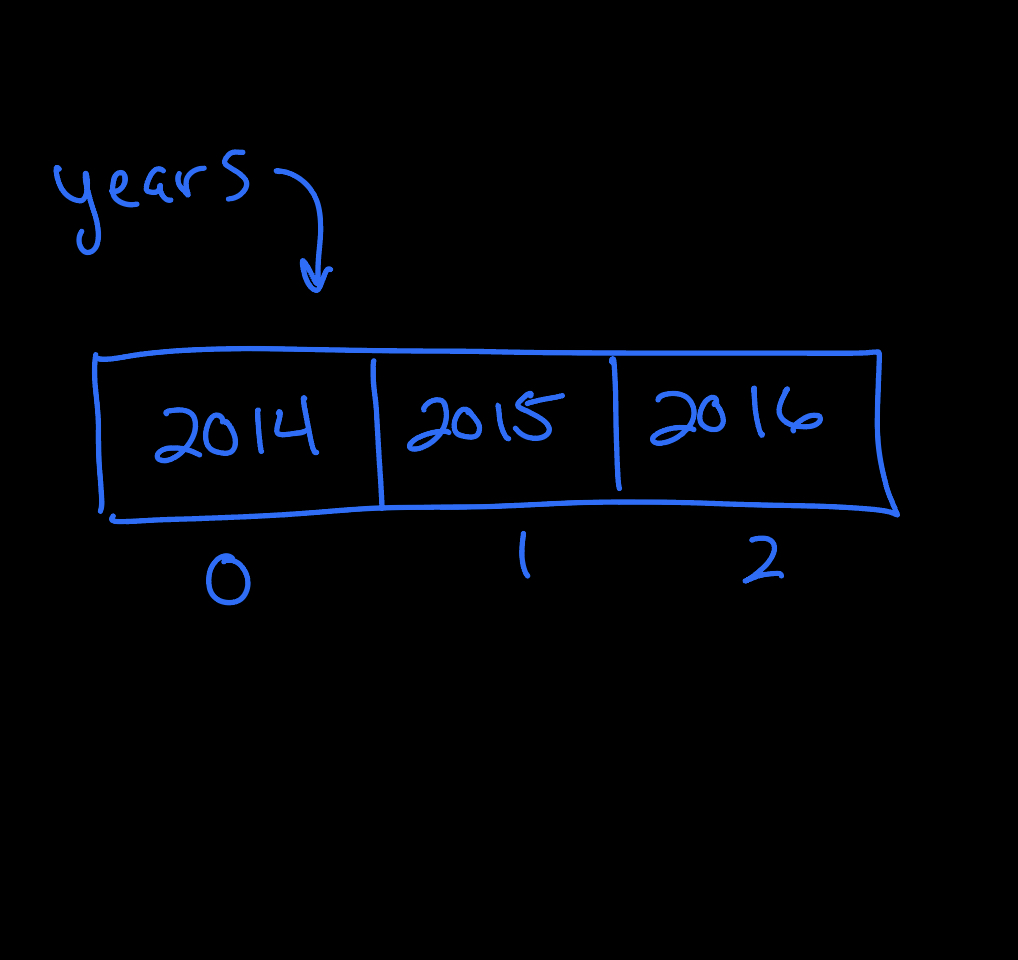 years
2014 2015 2016
0 1 2